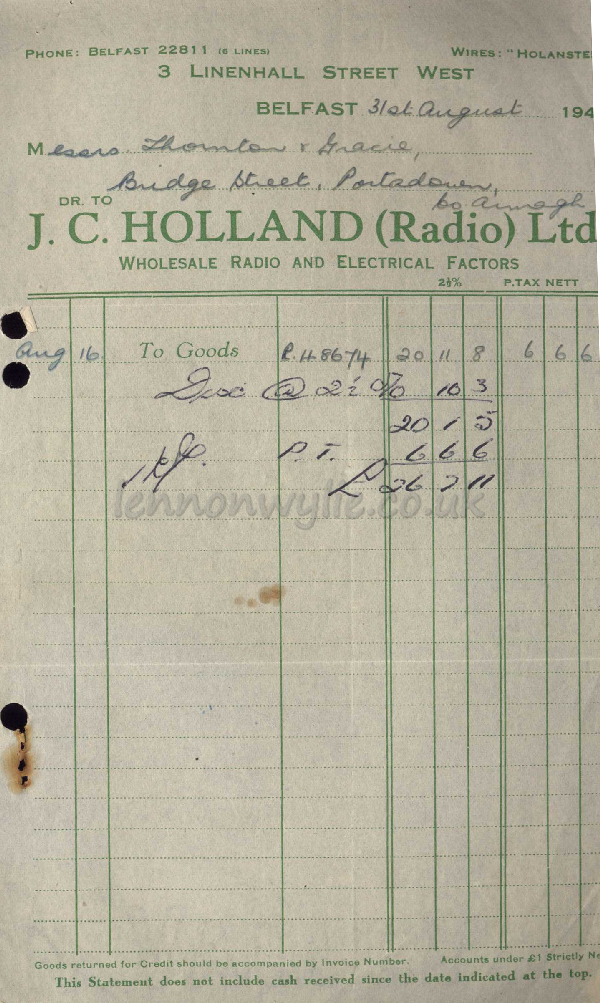 PHONE: BELFAST 22811 (6 LINES) WIRES: "HOLANSTE
3 LINENHALL STREET WEST
BELFAST 31st August 194
Messrs Thornton & Gracie,
Bridge Street, Portadown,
Co Armagh
DR. TO
J. C. HOLLAND (Radio) Ltd
WHOLESALE RADIO AND ELECTRICAL FACTORS
2½% P.TAX NETT
Aug 16 To Goods P.48674 20 11 8 6 6 6
Disc @ 2½ % 10 3
20 1 5
P. T. 6 6 6
£ 26 7 11
lennonwylie.co.uk
Goods returned for Credit should be accompanied by Invoice Number. Accounts under £1 Strictly Ne
This Statement does not include cash received since the date indicated at the top.